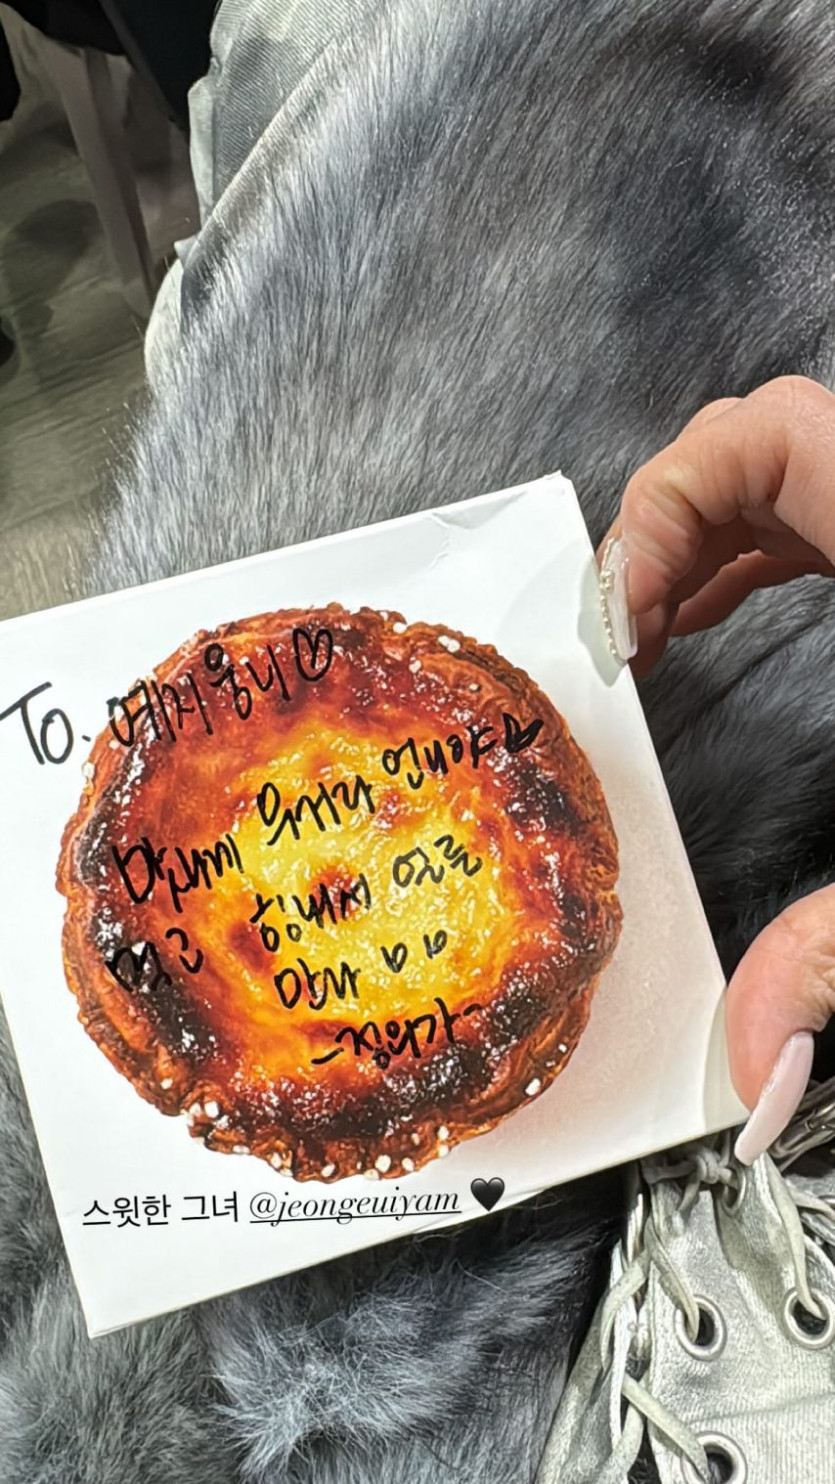 To. 예지 웅니♡
언니야♡
먹고 힘내서 얼른
만나
-정의가-
스윗한 그녀 @jeongeuiyam 🖤